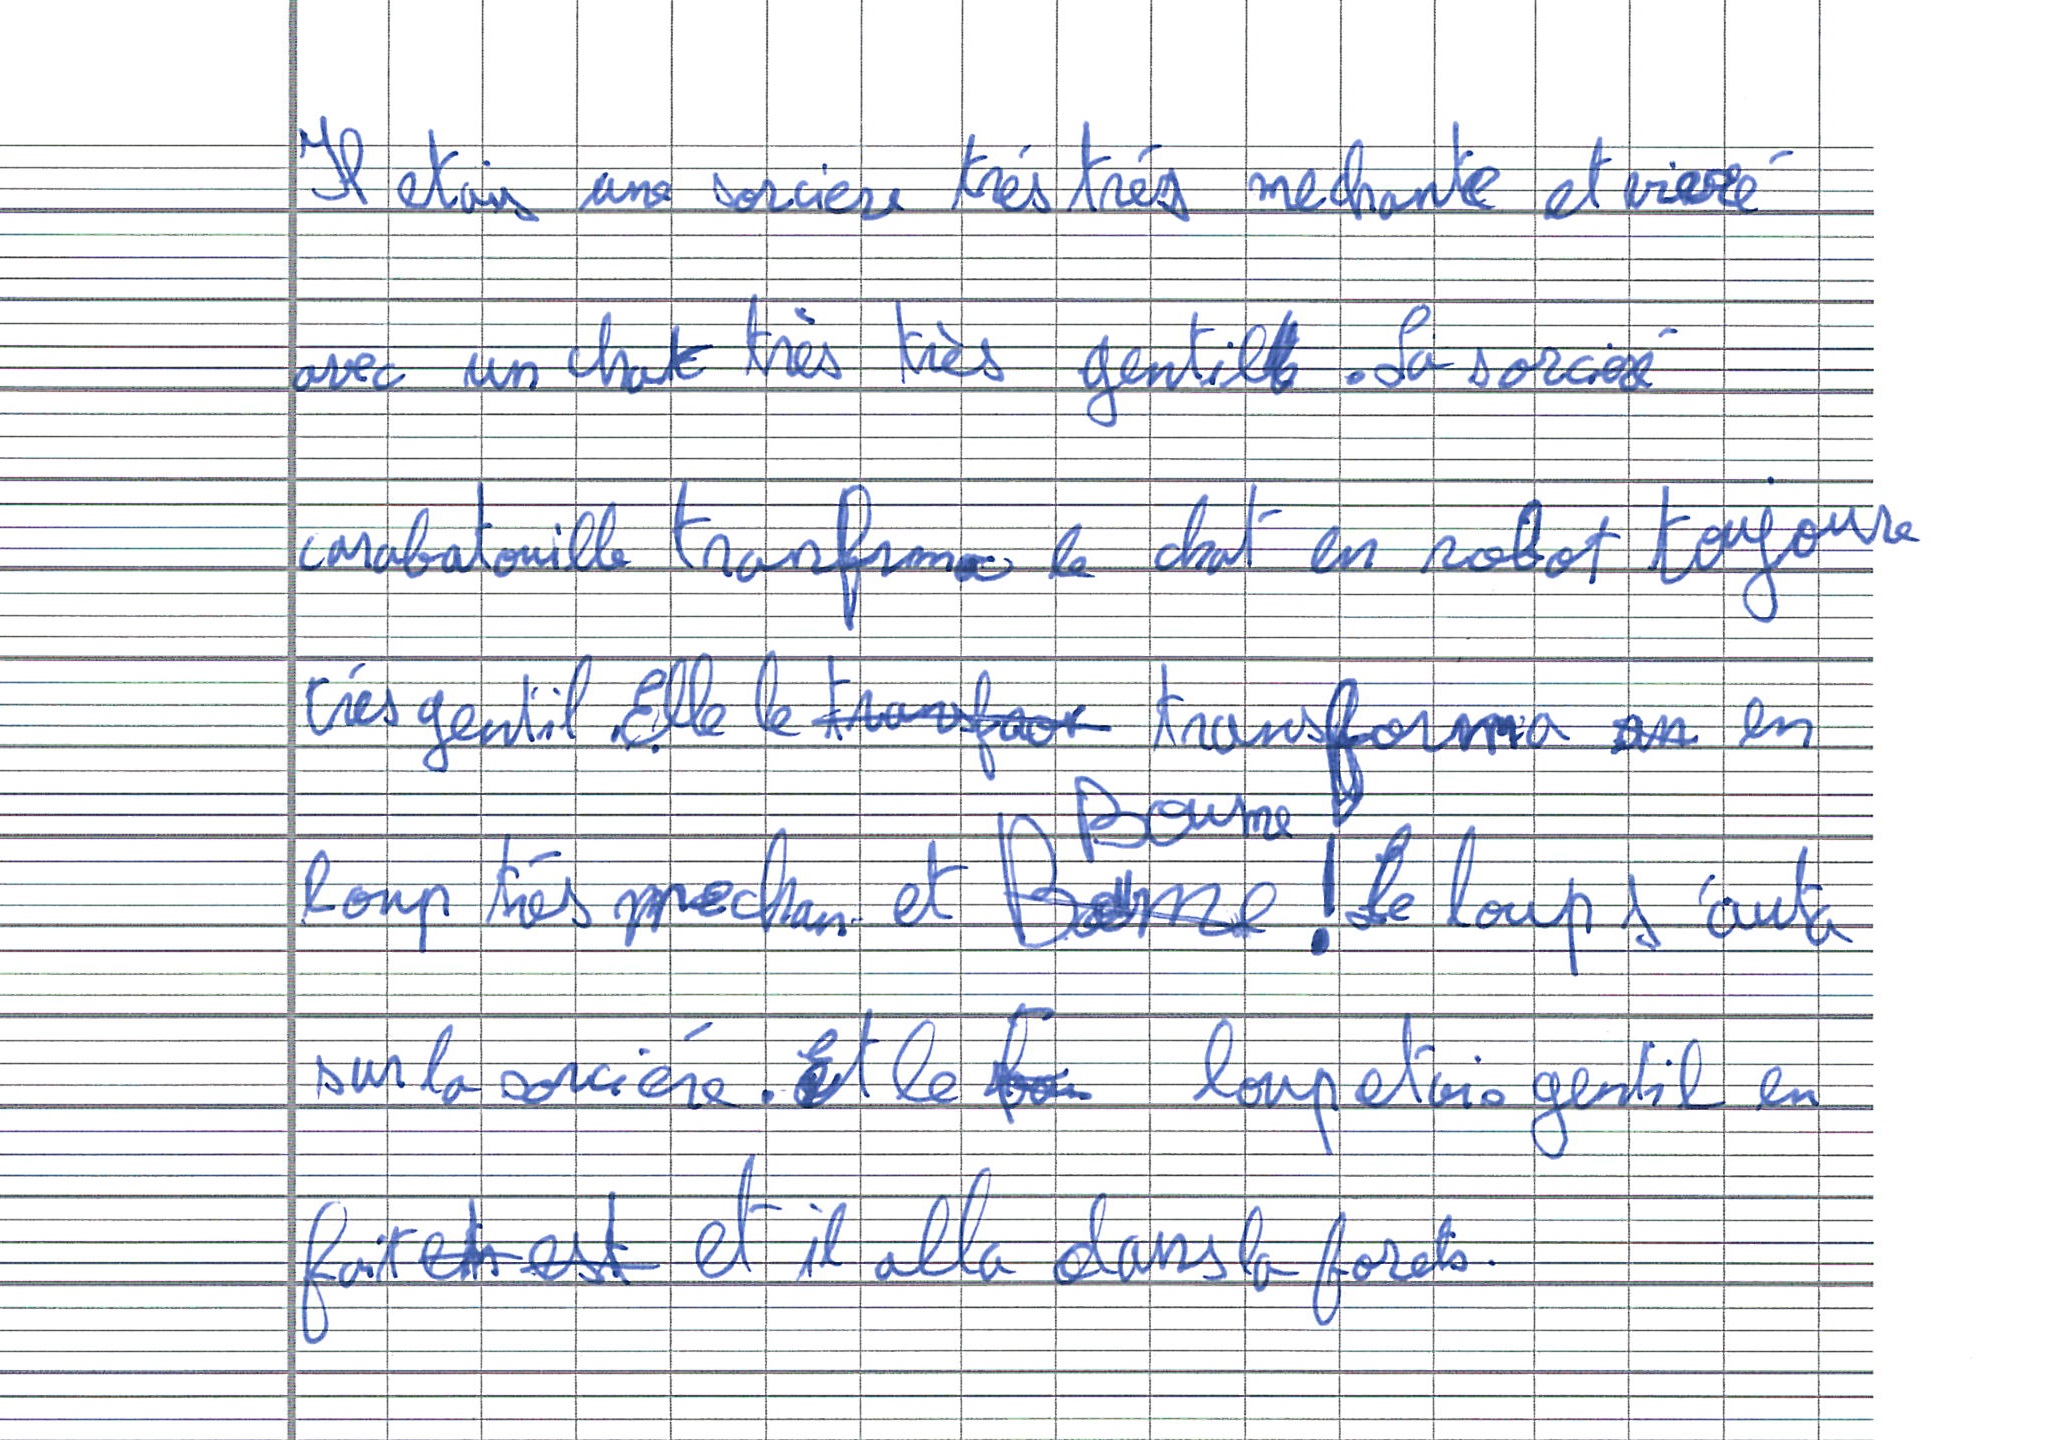 Il etais une sorciere trés trés mechante et
avec un chat très très gentil . La sorcieré
carabatouille tranfrma le chat en robot toujoure
trés gentil . Elle le transforma en
Boume
loup trés mechan et ! Le loup s'auta
sur la sorciére . Et le loup etais gentil en
fait et il alla dans la forets .